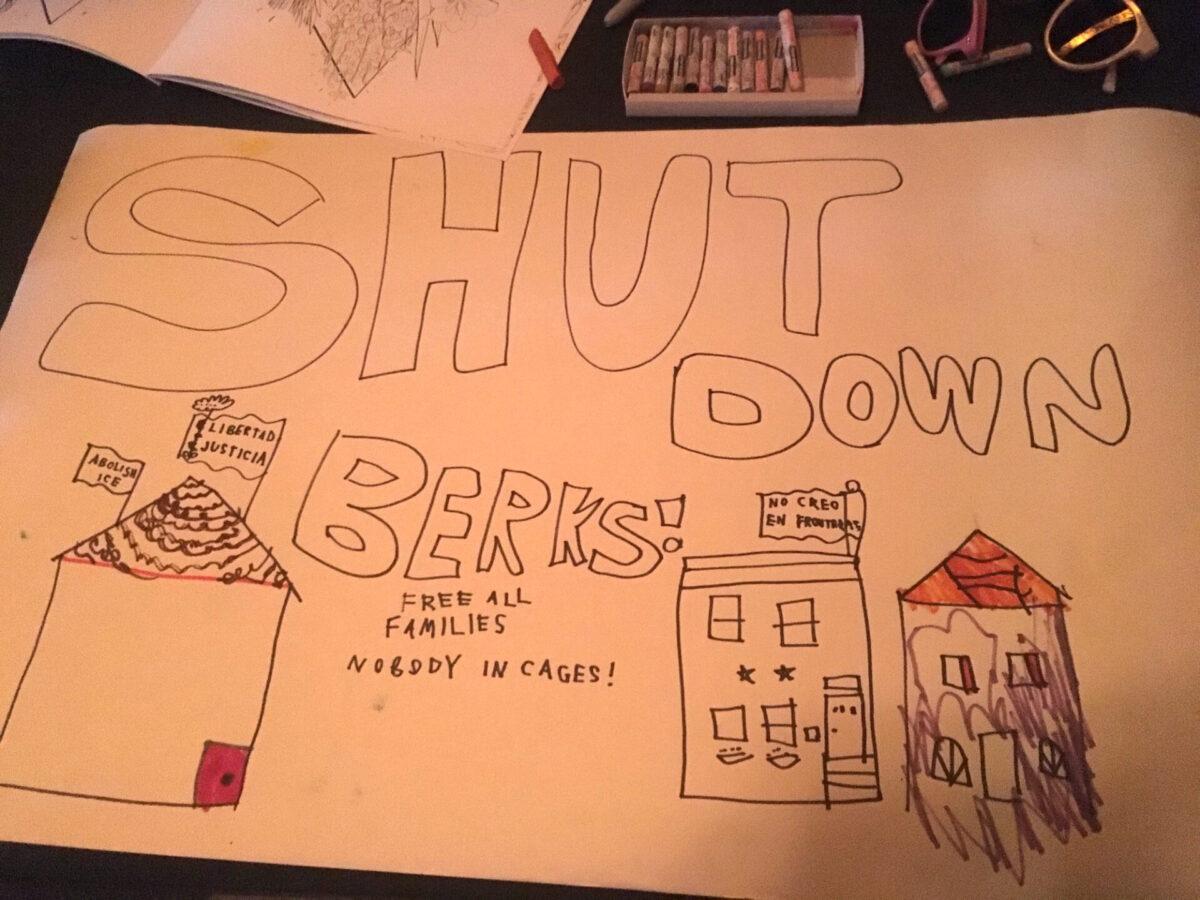 SHUT
DOWN
BERKS!
ABOLISH
ICE
LIBERTAD
JUSTICIA
NO CREO
EN FRONTERAS
FREE ALL
FAMILIES
NOBODY IN CAGES!